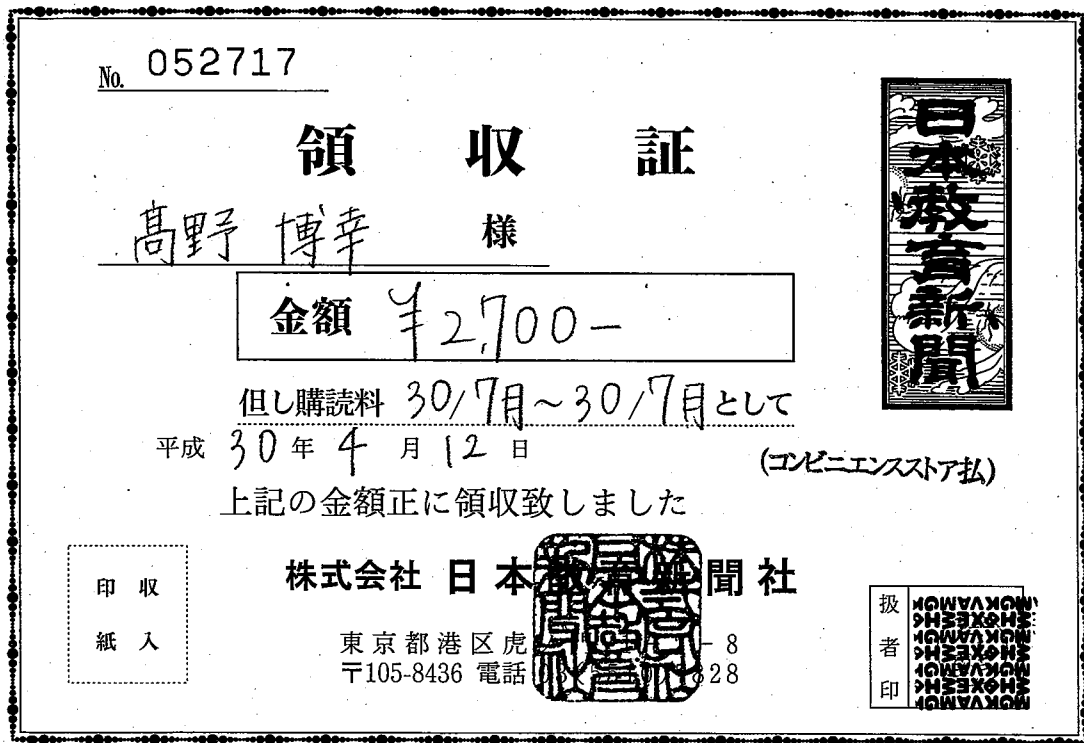 No. 052717
領収証
髙野 博幸 様
金額 ¥2,700−
但し購読料 30/7月〜30/7月として
平成 30年 4月 12日
(コンビニエンスストア払)
上記の金額正に領収致しました
株式会社 日本教育新聞社
東京都港区虎 -8
〒105-8436 電話 828
日本教育新聞
収入印紙
扱者印